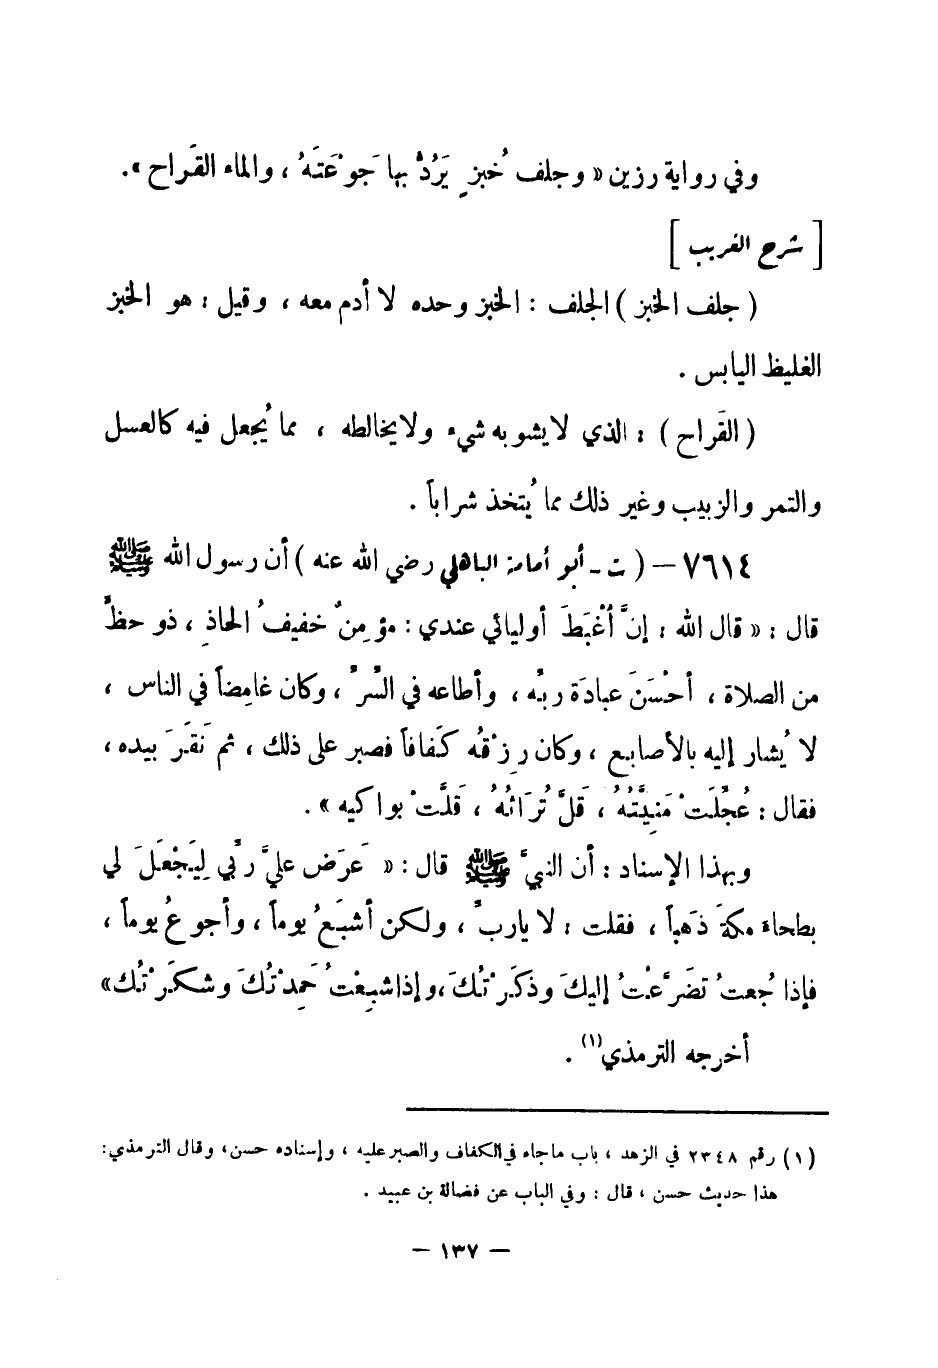 وفي رواية رزين « وجلف خُبزٍ يَرُدُّ بها جَوْعَتَهُ ، والماء القَراح » .
[ شرح الغريب ]
( جلف الخبز ) الجلف : الخبز وحده لا أدم معه ، وقيل : هو الخبز
الغليظ اليابس .
( القَراح ) : الذي لا يشوبه شيء ولا يخالطه ، مما يُجعل فيه كالعسل
والتمر والزبيب وغير ذلك مما يُتخذ شراباً .
٧٦١٤ – ( ت ـ أبو أمامة الباهلي رضي الله عنه ) أن رسول الله ﷺ
قال : « قال الله : إنَّ أغْبَطَ أوليائي عندي : مؤمِنٌ خفيفُ الحاذِ ، ذو حظٍّ
من الصلاة ، أحْسَنَ عبادَة ربِّه ، وأطاعه في السِّرِّ ، وكان غامِضاً في الناس ،
لا يُشار إليه بالأصابع ، وكان رِزْقُه كَفافاً فصبر على ذلك ، ثم نَقَرَ بيده ،
فقال : عُجِّلَتْ مَنِيَّتُهُ ، قَلَّ تُرَاثُهُ ، قَلَّتْ بواكيه » .
وبهذا الإسناد : أن النبيَّ ﷺ قال : « عَرَضَ عليَّ ربِّي لِيَجْعَلَ لي
بطحاءَ مكةَ ذَهَباً ، فقلت : لا ياربِّ ، ولكن أشبَعُ يوماً ، وأجوعُ يوماً ،
فإذا جُعتُ تضَرَّعْتُ إليكَ وذكَرْتُكَ ، وإذا شبِعْتُ حَمِدْتُكَ وشكَرْتُك »
أخرجه الترمذي (١) .
(١) رقم ٢٣٤٨ في الزهد ، باب ماجاء في الكفاف والصبر عليه ، وإسناده حسن ، وقال الترمذي :
هذا حديث حسن ، قال : وفي الباب عن فضالة بن عبيد .
– ١٣٧ –